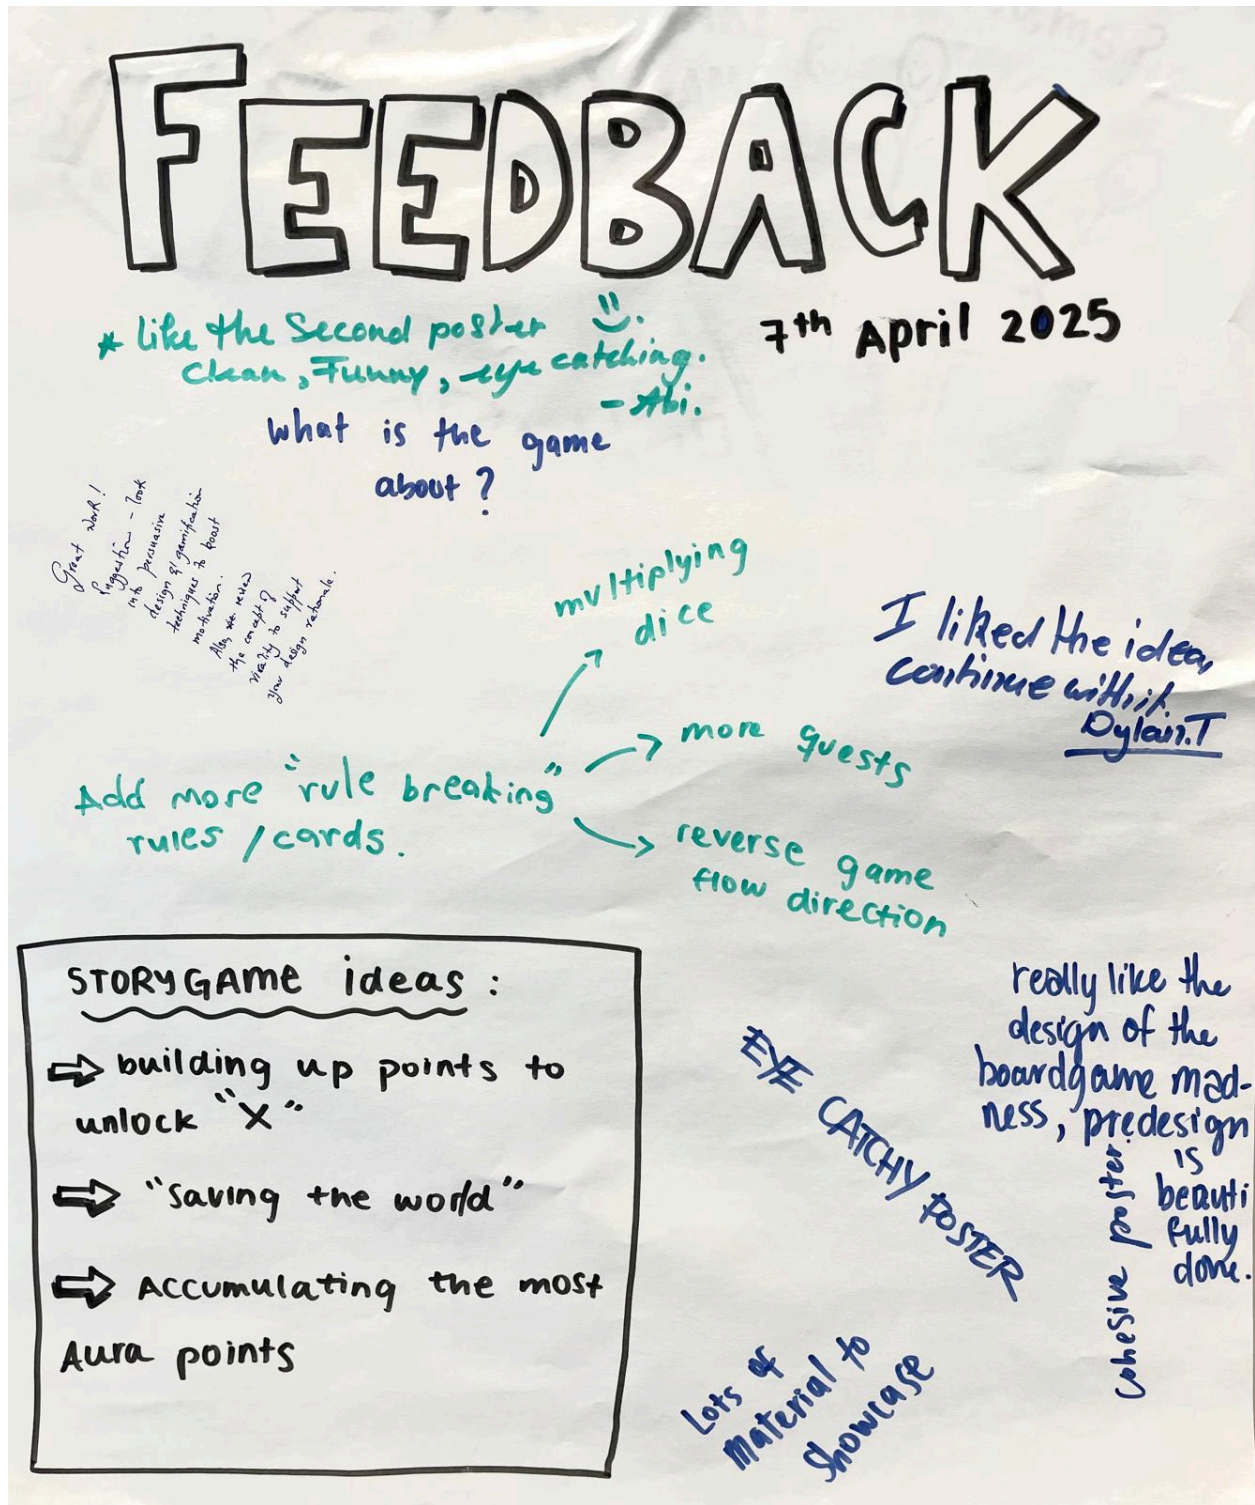 FEEDBACK
7th April 2025
* like the Second poster
clean, Funny, eye catching.
- Abi.
What is the game
about?
Great work!
Suggestion - look
into persuasive
design & gamification
techniques to boost
motivation.
Also, review
the concept of
virality to support
your design rationale.
multiplying
dice
I liked the idea,
continue with it.
Dylan.T
more quests
Add more "rule breaking"
rules / cards.
reverse game
flow direction
STORYGAME ideas:
⇨ building up points to
unlock "X"
⇨ "saving the world"
⇨ Accumulating the most
Aura points
really like the
design of the
boardgame mad-
ness, predesign
is
beauti
fully
done.
EYE CATCHY POSTER
cohesive poster
Lots of
Material to
Showcase